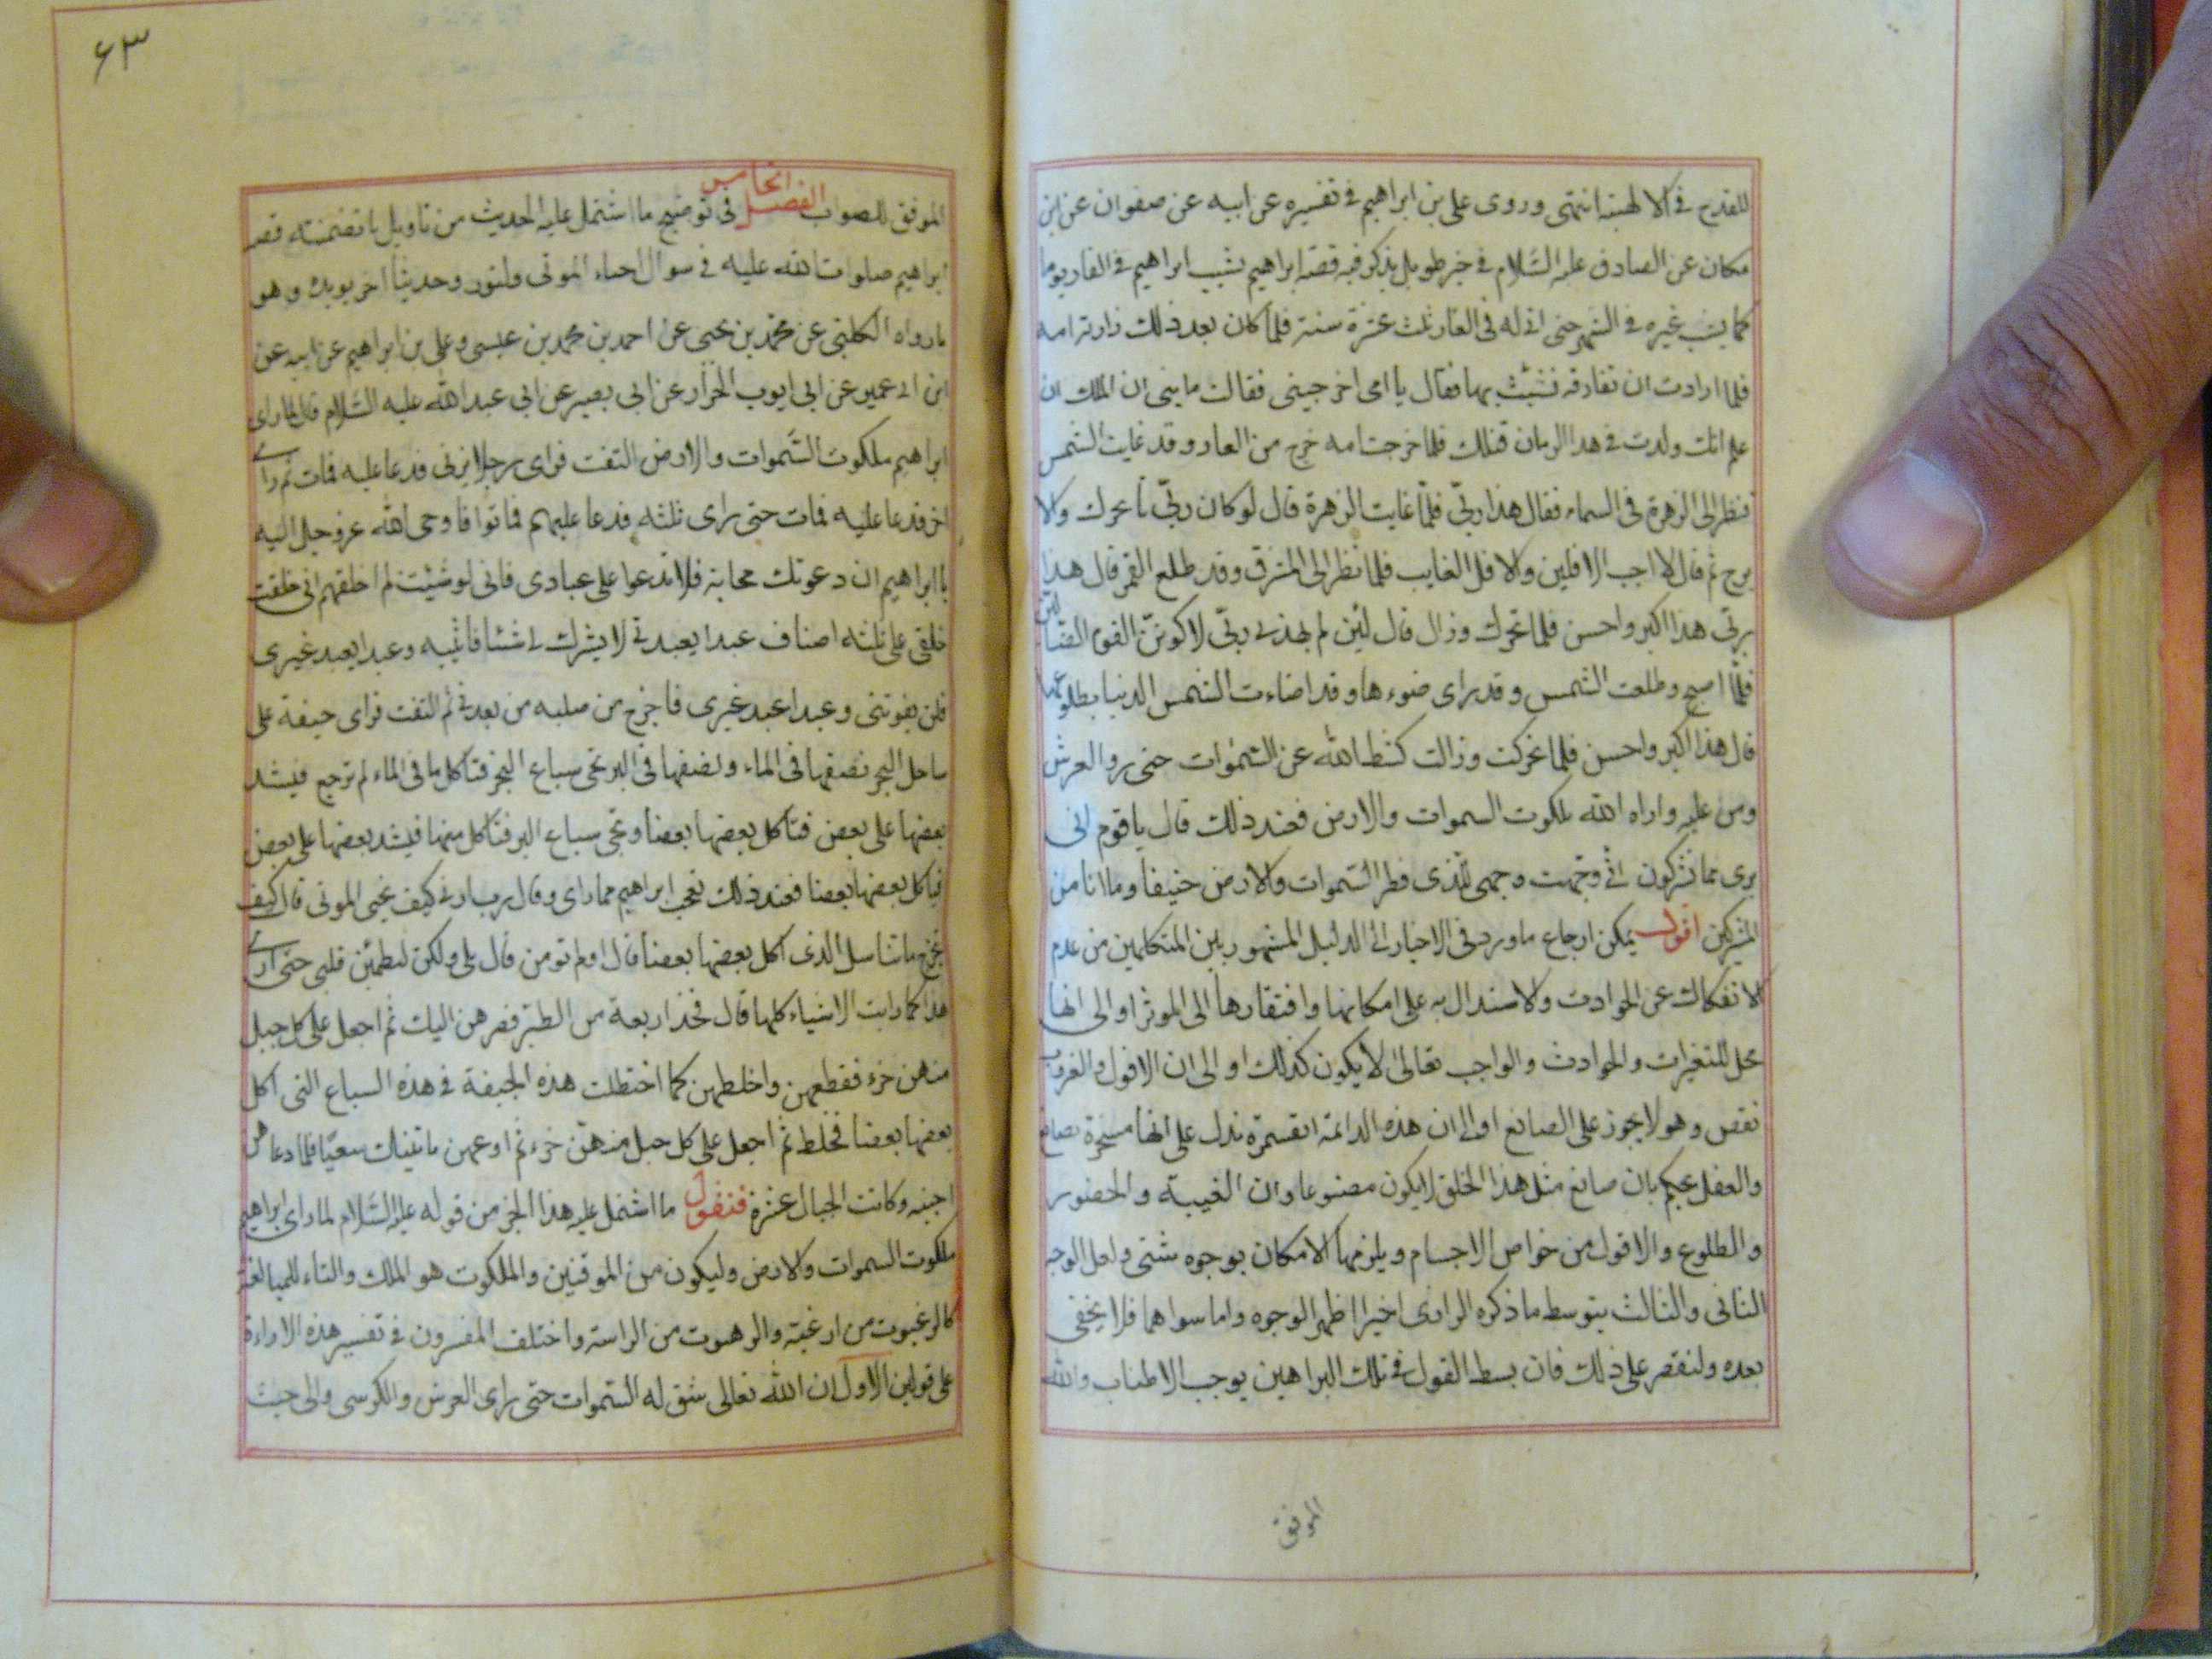 للقدح في الالهية انتهى وروى على بن ابراهيم فى تفسيره عن ابيه عن صفوان عن ابن
مسكان عن الصادق عليه السَّلام فى خبر طويل يذكر فيه قصة ابراهيم يشب ابراهيم فى الغار يوما
كما يشب غيره فى الشهر حتى اتى له فى الغار ثلث عشرة سنة فلما كان بعد ذلك زارته امه
فلما ارادت ان تفارقه تشبث بها فقال يا امى اخرجينى فقالت يا بنى ان الملك ان
علم انك ولدت فى هذا الزمان قتلك فلما خرجت امه خرج من الغار وقد غابت الشمس
فنظر الى الزهرة فى السماء فقال هذا ربّى فلمّا غابت الزهرة قال لو كان ربّى ما تحرك ولا
برح ثم قال لا احب الافلين والافل الغايب فلما نظر الى المشرق وقد طلع القمر قال هذا
ربّى هذا اكبر واحسن فلما تحرك وزال قال لئن لم يهدنى ربّى لاكوننّ من القوم الضّالين
فلمّا اصبح وطلعت الشمس وقد راى ضوءها وقد اضاءت الشمس الدنيا بطلوعها
قال هذا اكبر واحسن فلما تحركت وزالت كشط الله عن السَّمٰوات حتى راى العرش
ومن عليه واراه الله ملكوت السموات والارض فعند ذلك قال يا قوم انى
برى مما تشركون انّى وجّهت وجهى للّذى فطر السّموات والارض حنيفا وما انا من
المشركين اقول يمكن ارجاع ما ورد فى الاخبار الى الدليل المشهور بين المتكلمين من عدم
الانفكاك عن الحوادث والاستدلال به على امكانها وافتقارها الى الموثر او الى انها
محل للتغيرات والحوادث والواجب تعالى لا يكون كذلك او الى ان الافول والغروب
نقص وهو لا يجوز على الصانع او الى ان هذه الدائمة المستمرة تدل على انها مسخرة لصانع
والعقل يحكم بان صانع مثل هذا الخلق لا يكون مصنوعا وان الغيبة والحضور
والطلوع والافول من خواص الاجسام ويلزمها الامكان بوجوه شتى ولعل الوجه
الثانى والثالث بتوسط ما ذكره الراوى اخيرا اظهر الوجوه واما سواهما فلا يخفى
بعده ولنقتصر على ذلك فان بسط القول فى تلك البراهين يوجب الاطناب والله
الموفق
۶۳
الموفق للصواب الفصل الخامس فى توضيح ما اشتمل عليه الحديث من تاويل ما تضمنته قصة
ابراهيم صلوات الله عليه فى سوال احياء الموتى ولنورد حديثا اخر يويده وهو
ما رواه الكلينى عن محمّد بن يحيى عن احمد بن محمد بن عيسى وعلى بن ابراهيم عن ابيه عن
ابن ابى عمير عن ابى ايوب الخزّاز عن ابى بصير عن ابى عبد الله عليه السَّلام قال لما راى
ابراهيم ملكوت السَّموات والارض التفت فراى رجلا يزنى فدعا عليه فمات ثم راى
اخر فدعا عليه فمات حتى راى ثلثه فدعا عليهم فماتوا فاوحى الله عز وجل اليه
يا ابراهيم ان دعوتك مجابة فلا تدعوا على عبادى فانى لو شئت لم اخلقهم انى خلقت
خلقى على ثلثه اصناف عبدا يعبدنى لا يشرك بى شئا فاثيبه وعبدا يعبد غيرى
فلن يفوتنى وعبدا عبد غيرى فاخرج من صلبه من يعبدنى ثم التفت فراى جيفة على
ساحل البحر نصفها فى الماء ونصفها فى البر تجى سباع البحر فتاكل ما فى الماء ثم ترجع فيشد
بعضها على بعض فتاكل بعضها بعضا وتجى سباع البر فتاكل منها فيشد بعضها على بعض
فياكل بعضها بعضا فعند ذلك تعجب ابراهيم مما راى وقال رب ارنى كيف تحيى الموتى قال كيف
تخرج ما تناسل الذى اكل بعضها بعضا قال اولم تومن قال بلى ولكن ليطمئن قلبى حتى ارى
هذا كما رايت الاشياء كلها قال فخذ اربعة من الطير فصرهن اليك ثم اجعل على كل جبل
منهن جزء فقطعهن واخلطهن كما اختطلت هذه الجيفة فى هذه السباع التى اكل
بعضها بعضا فخلط ثم اجعل على كل جبل منهنّ جزء ثم ادعهن ياتينك سعيًا فلما دعاهن
اجبنه وكانت الجبال عشرة فنقول ما اشتمل عليه هذا الخبر من قوله عليه السَّلام لما راى ابراهيم
ملكوت السموات والارض وليكون من الموقنين والملكوت هو الملك والتاء للمبالغة
كالرغبوت من الرغبة والرهبوت من الرهبة واختلف المفسرون فى تفسير هذه الاراءة
على قولين الاول ان الله تعالى شق له السّموات حتى راى العرش والكرسى والى حيث